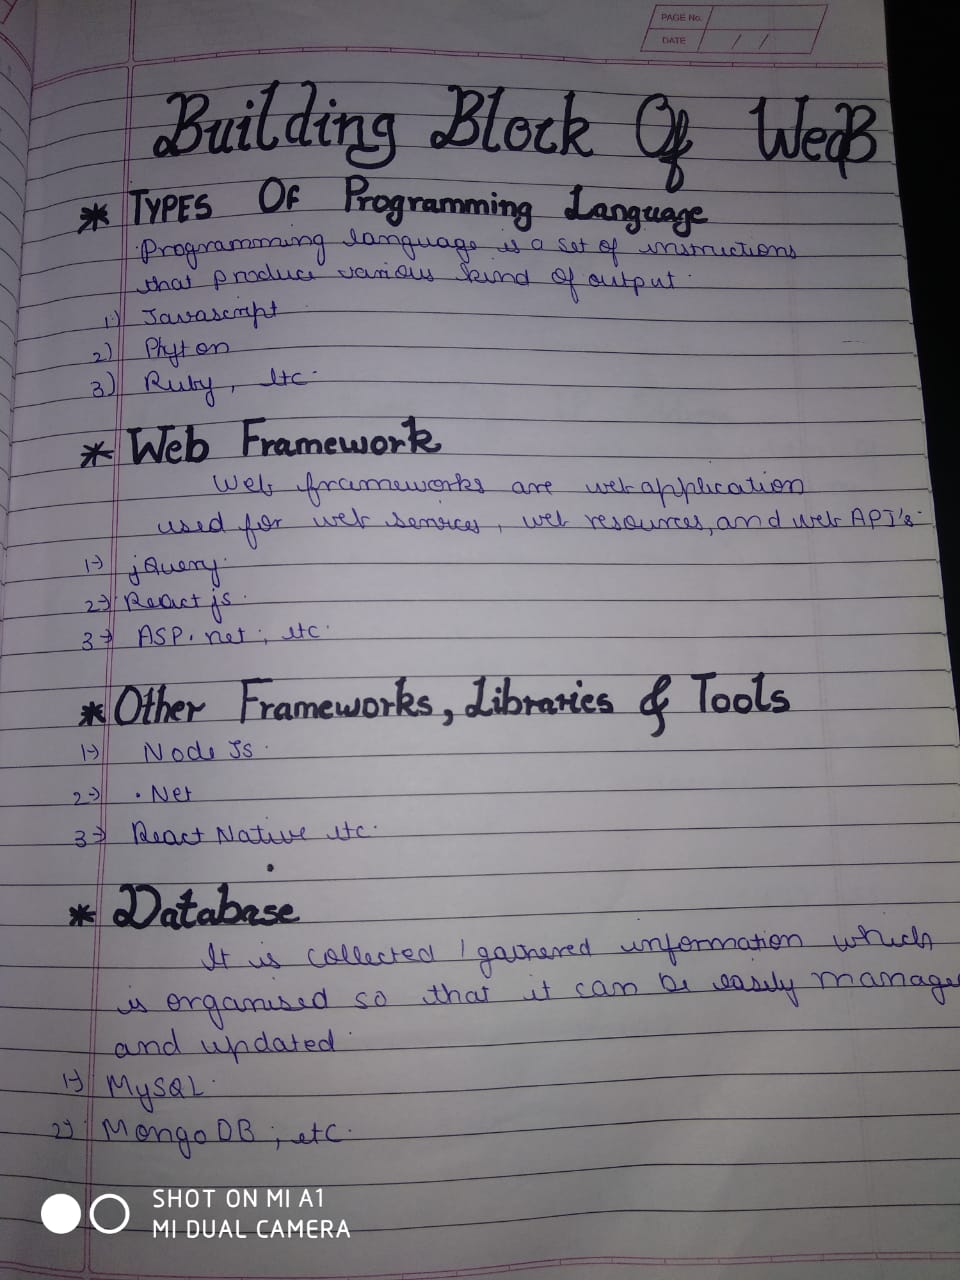 PAGE No.
DATE / /
Building Block Of WeB
* TYPES OF Programming Language
Programming language is a set of instructions
that produce various kind of output.
1) Javascript
2) Phyton
3) Ruby, etc.
* Web Framework
Web frameworks are web application
used for web services, web resources, and web API's.
1) jQuery.
2) React js.
3) ASP.net, etc.
* Other Frameworks, Libraries & Tools
1) Node Js.
2) .Net
3) React Native etc.
* Database
It is collected / gathered information which
is organised so that it can be easily manage
and updated
1) MySQL.
2) MongoDB, etc.
SHOT ON MI A1
MI DUAL CAMERA